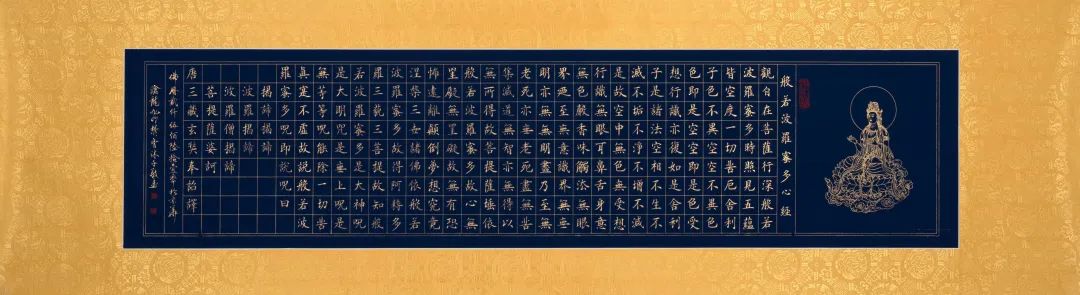 般若波羅蜜多心經
觀自在菩薩行深般若
波羅蜜多時照見五蘊
皆空度一切苦厄舍利
子色不異空空不異色
色即是空空即是色受
想行識亦復如是舍利
子是諸法空相不生不
滅不垢不淨不增不減
是故空中無色無受想
行識無眼耳鼻舌身意
無色聲香味觸法無眼
界乃至無意識界無無
明亦無無明盡乃至無
老死亦無老死盡無苦
集滅道無智亦無得以
無所得故菩提薩埵依
般若波羅蜜多故心無
罣礙無罣礙故無有恐
怖遠離顛倒夢想究竟
涅槃三世諸佛依般若
波羅蜜多故得阿耨多
羅三藐三菩提故知般
若波羅蜜多是大神呪
是大明呪是無上呪是
無等等呪能除一切苦
真實不虛故說般若波
羅蜜多呪即說呪曰
揭諦揭諦
波羅揭諦
波羅僧揭諦
菩提薩婆訶
唐三藏玄奘奉詔譯
佛曆貳仟伍佰陸拾